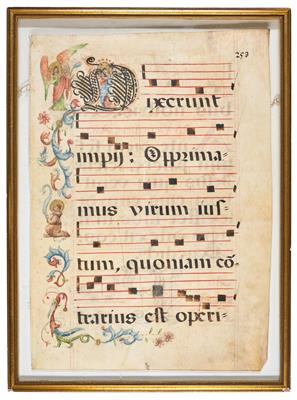 253
Dixerunt
impij: Opprima-
mus virum ius-
tum, quoniam cõ-
trarius est operi-